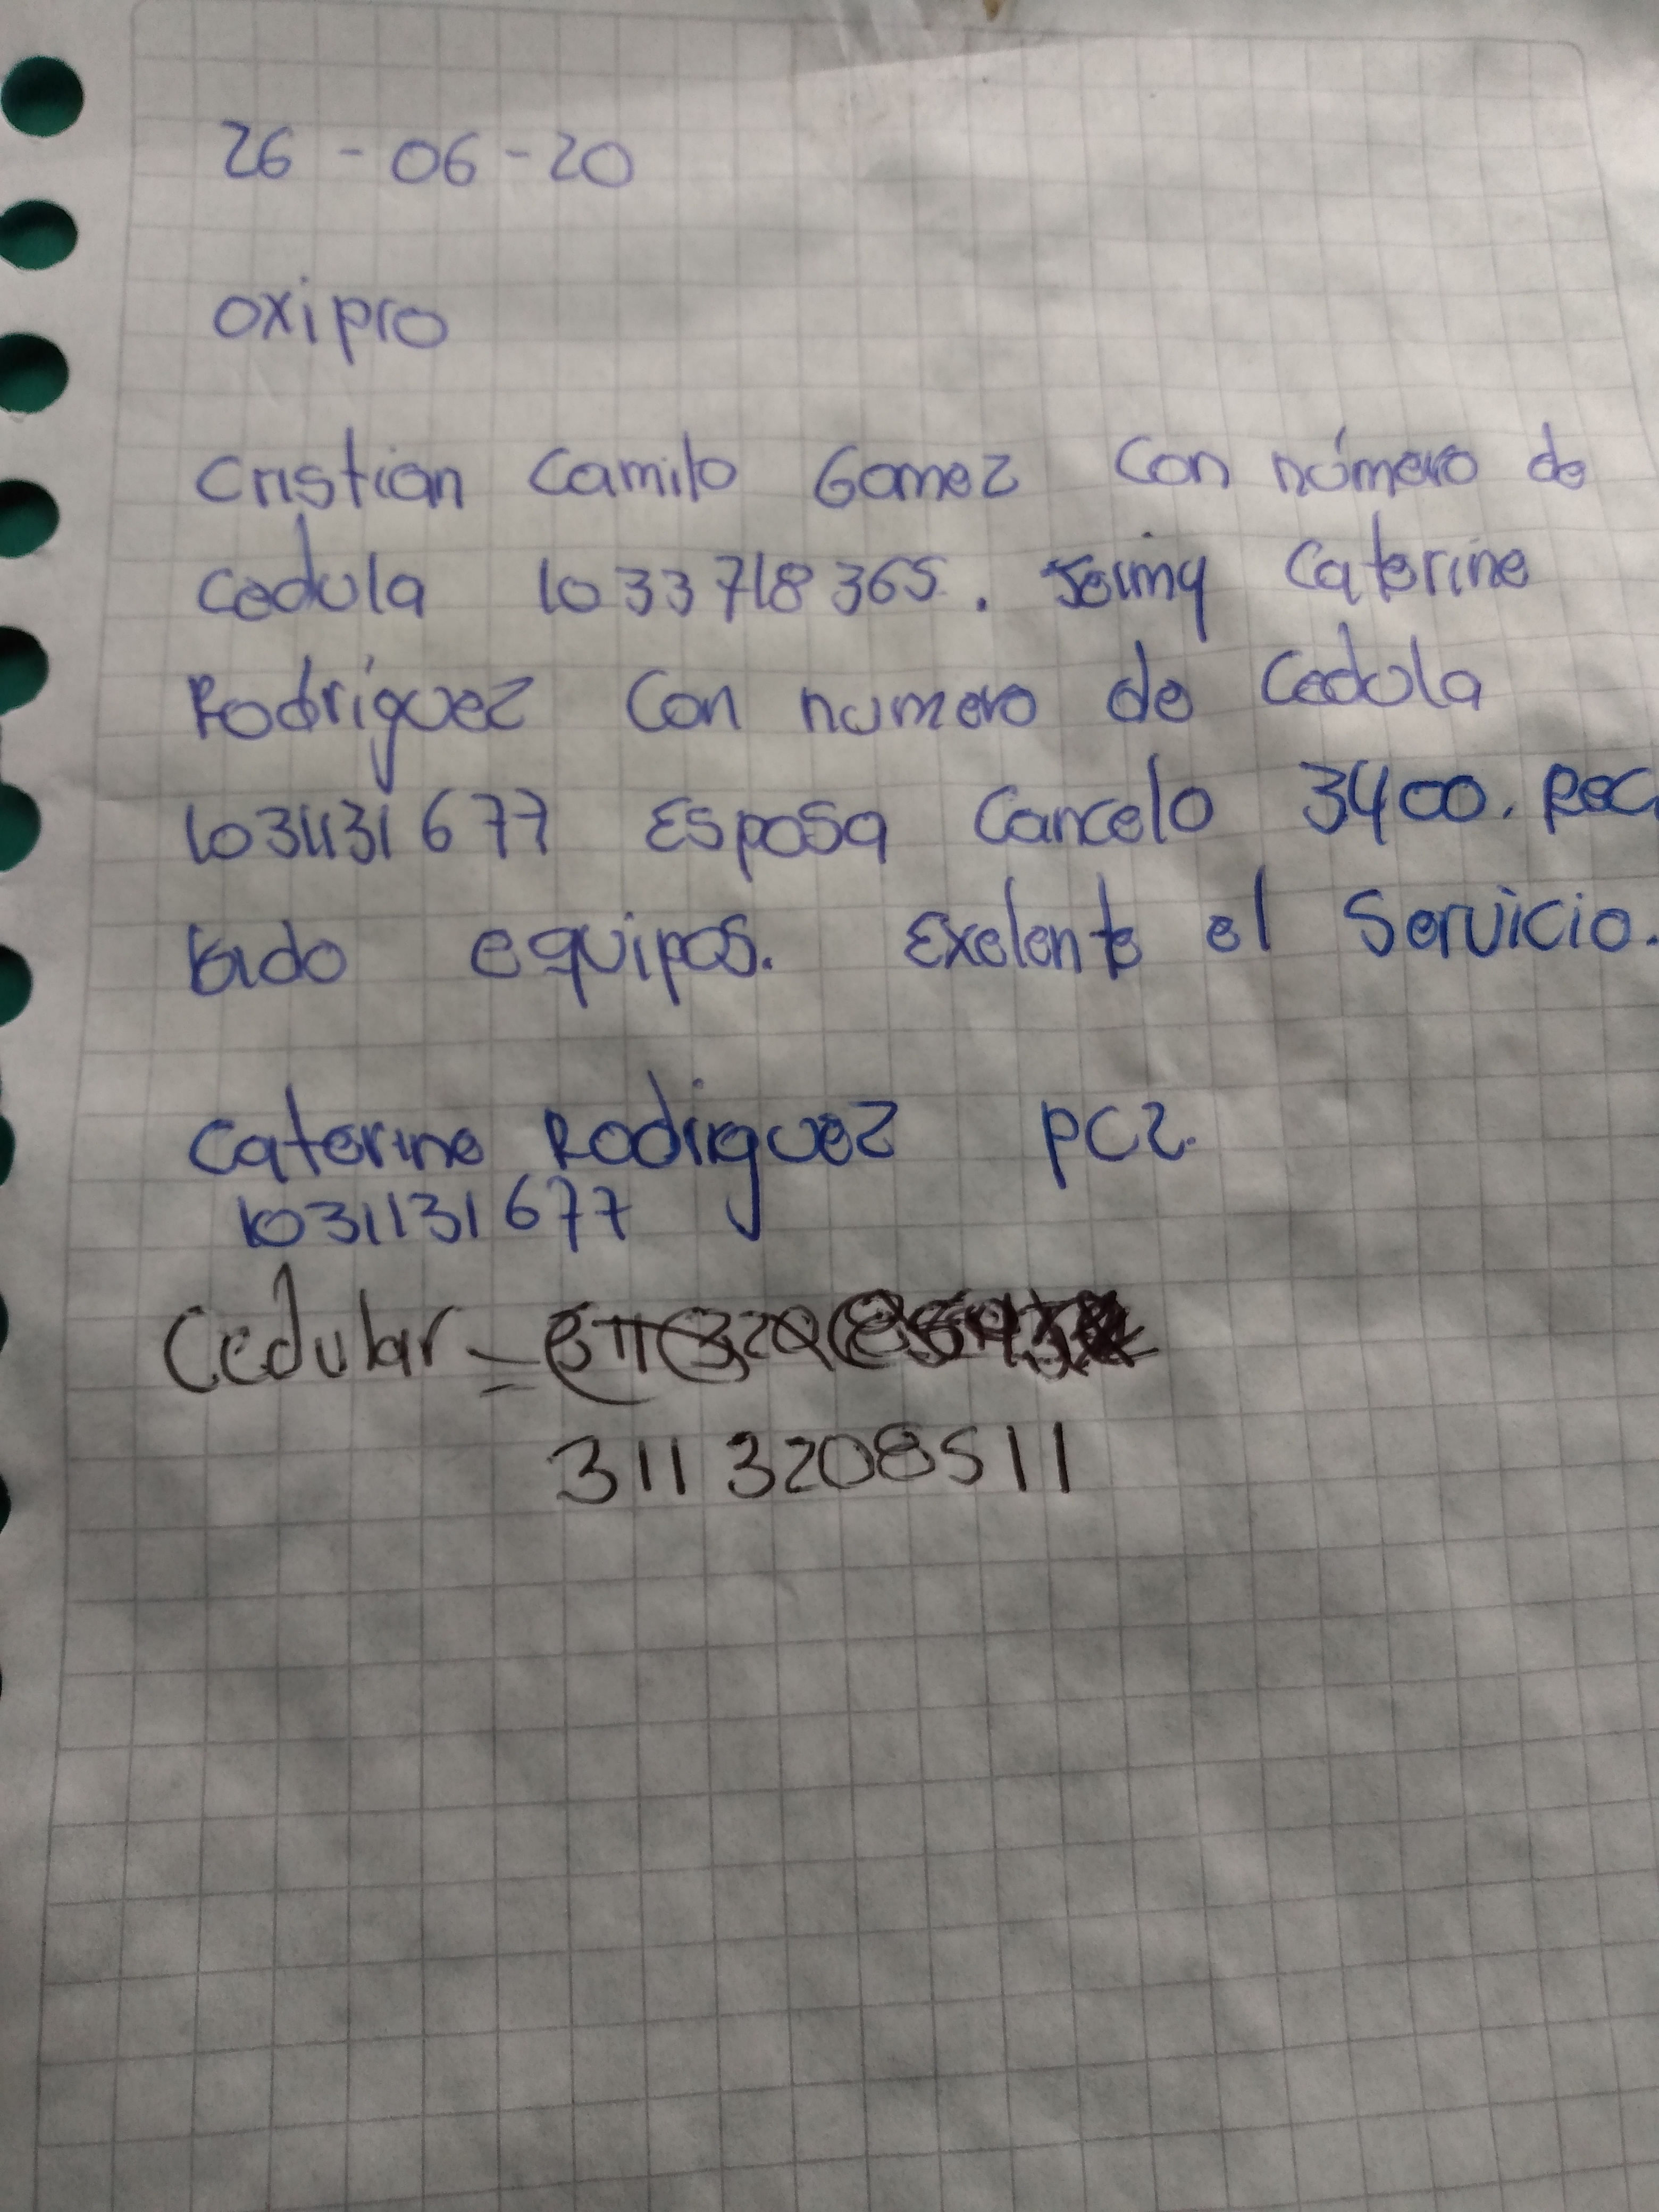 26 - 06 - 20
oxipro
Cristian Camilo Gomez Con número de
Cedula 1033718365. Caterine
Rodríguez Con numero de Cedula
1031131677 Esposa Cancelo 3400. Rec
tado equipos. Exelente el Servicio.
Caterine Rodriguez PC2.
1031131677
Cedular =
311 3208511